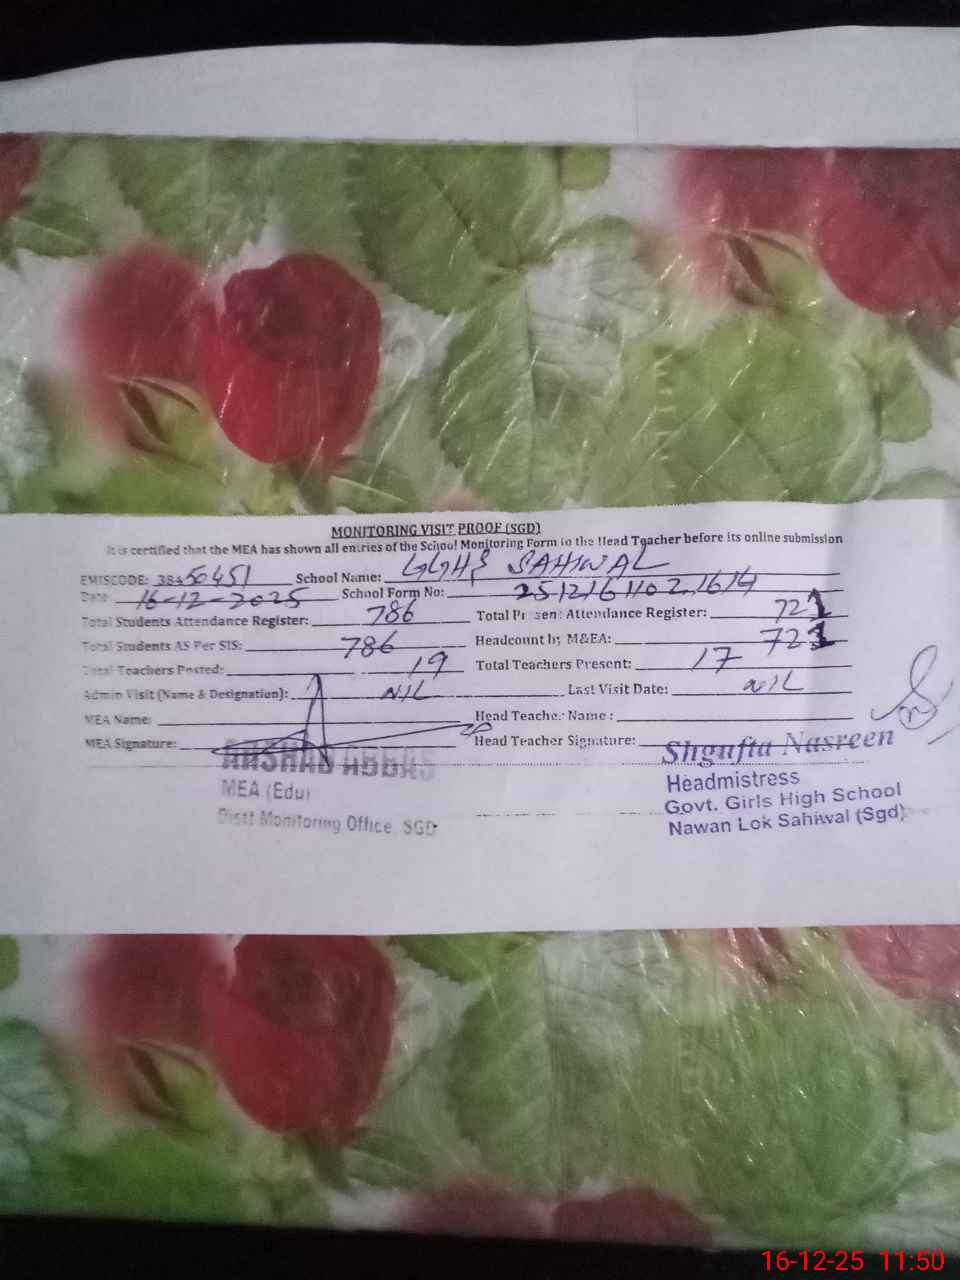 MONITORING VISIT PROOF (SGD)
It is certified that the MEA has shown all entries of the School Monitoring Form to the Head Teacher before its online submission
EMISCODE: 38450451 School Name: GGHS SAHIWAL
Date: 16-12-2025 School Form No:
Total Students Attendance Register: 786 Total Present Attendance Register: 721
Total Students AS Per SIS: 786 Headcount by M&EA: 721
Total Teachers Posted: 19 Total Teachers Present: 17
Admin Visit (Name & Designation): NIL Last Visit Date: NIL
MEA Name: Head Teacher Name :
MEA Signature: Head Teacher Signature:
ARSHAD ABBAS
MEA (Edu)
Distt Monitoring Office, SGD
Shgufta Nasreen
Headmistress
Govt. Girls High School
Nawan Lok Sahiwal (Sgd)
16-12-25 11:50